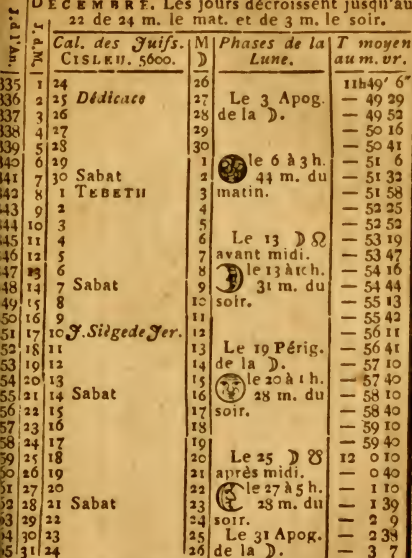 DECEMBRE. Les jours décroissent jusqu'au
22 de 24 m. le mat. et de 3 m. le soir.
J.d.l'An. J.d.M. Cal. des Juifs. CISLEU. 5600. M ☽ Phases de la Lune. T moyen au m. vr.
335 1 24 26 11h49' 6"
336 2 25 Dédicace 27 Le 3 Apog. — 49 29
337 3 26 28 de la ☽. — 49 52
338 4 27 29 — 50 16
339 5 28 30 — 50 41
340 6 29 1 le 6 à 3 h. — 51 6
341 7 30 Sabat 2 44 m. du — 51 32
342 8 1 TEBETH 3 matin. — 51 58
343 9 2 4 — 52 25
344 10 3 5 — 52 52
345 11 4 6 Le 13 ☽ ☊ — 53 19
346 12 5 7 avant midi. — 53 47
347 13 6 8 le 13 à 10h. — 54 16
348 14 7 Sabat 9 31 m. du — 54 44
349 15 8 10 soir. — 55 13
350 16 9 11 — 55 42
351 17 10 J. Siège de Jer. 12 — 56 11
352 18 11 13 Le 19 Périg. — 56 41
353 19 12 14 de la ☽. — 57 10
354 20 13 15 le 20 à 1 h. — 57 40
355 21 14 Sabat 16 28 m. du — 58 10
356 22 15 17 soir. — 58 40
357 23 16 18 — 59 10
358 24 17 19 — 59 40
359 25 18 20 Le 25 ☽ ☋ 12 0 10
360 26 19 21 après midi. — 0 40
361 27 20 22 le 27 à 5 h. — 1 10
362 28 21 Sabat 23 28 m. du — 1 39
363 29 22 24 soir. — 2 9
364 30 23 25 Le 31 Apog. — 2 38
365 31 24 26 de la ☽. — 3 7